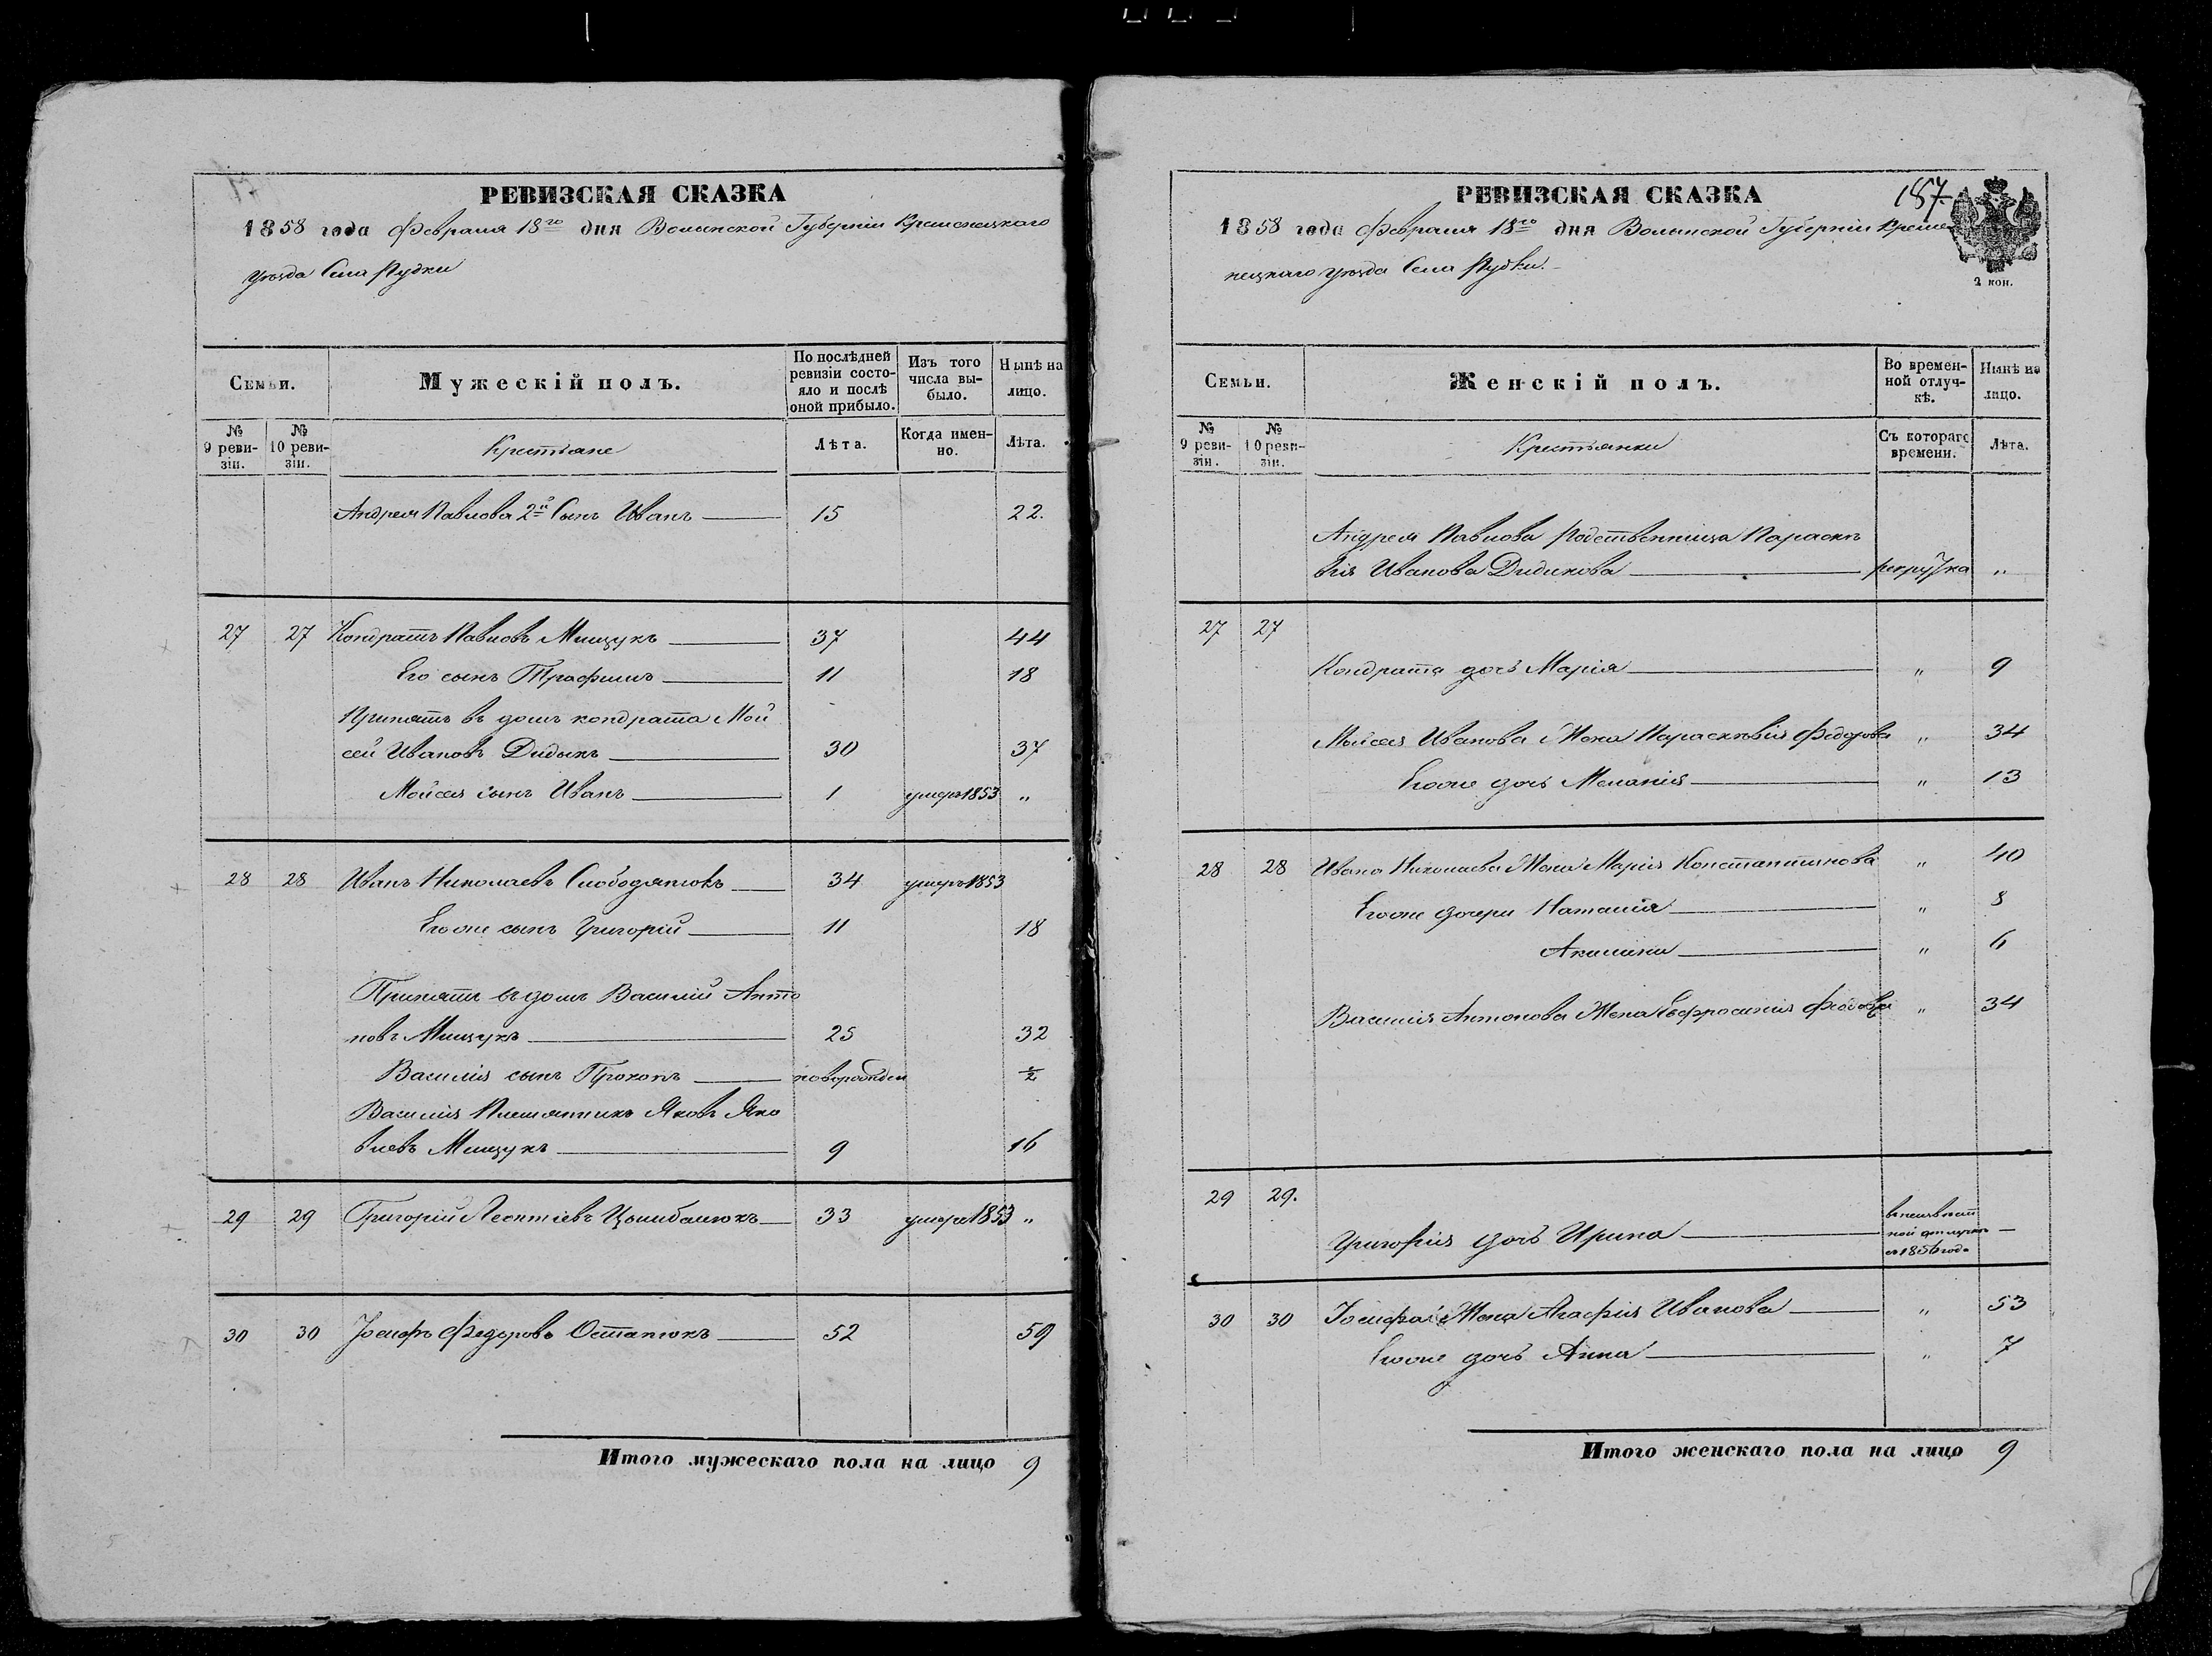 РЕВИЗСКАЯ СКАЗКА
1858 года Февраля 18го дня Волынской Губерніи Кременецкаго
уѣзда Села Рудки
Семьи.
Мужескій полъ.
По послѣдней ревизіи состояло и послѣ оной прибыло.
Изъ того числа выбыло.
Нынѣ на лицо.
№ 9 ревизіи.
№ 10 ревизіи.
Крестьяне
Лѣта.
Когда именно.
Лѣта.
Андрея Павлова 2й Сынъ Иванъ 15 22.
27 27 Кондратъ Павловъ Мищукъ 37 44
Его сынъ Трофимъ 11 18
Принятъ въ домъ кондрата Мой
сей Ивановъ Дидыкъ 30 37
Мойсея сынъ Иванъ 1 умеръ 1853 "
28 28 Иванъ Николаевъ Слободянюкъ 34 умеръ 1853
Егоже сынъ Григорій 11 18
Принятъ въ домъ Василій Анто
новъ Мищукъ 25 32
Василія сынъ Прокопъ новорожден ½
Василія Племянникъ Яковъ Яко
влевъ Мищукъ 9 16
29 29 Григорій Леонтіевъ Цымбалюкъ 33 умеръ 1853 "
30 30 Іосифъ Федоровъ Остапюкъ 52 59
Итого мужескаго пола на лицо 9
187.
РЕВИЗСКАЯ СКАЗКА
1858 года Февраля 18го дня Волынской Губерніи Креме
нецкаго уѣзда Села Рудки.
2 коп.
Семьи.
Женскій полъ.
Во временной отлучкѣ.
Нынѣ на лицо.
№ 9 ревизіи.
№ 10 ревизіи.
Крестьянки
Съ котораго времени.
Лѣта.
Андрея Павлова Родственница Параск
вія Иванова Дидикова рекрутка "
27 27
Кондрата дочь Марія " 9
Мойсея Иванова Жена Параскевія Федорова " 34
Егоже дочь Меланія " 13
28 28 Ивана Николаева Жена Марія Константинова " 40
Егоже дочери Наталія " 8
Акилина " 6
Василія Антонова Жена Евфросинія Федорова " 34
29 29.
Григорія дочь Ирина
въ неизвѣст
ной отлучкѣ
съ 1856 года
30 30 Іосифа Жена Агафія Иванова " 53
Егоже дочь Анна " 7
Итого женскаго пола на лицо 9